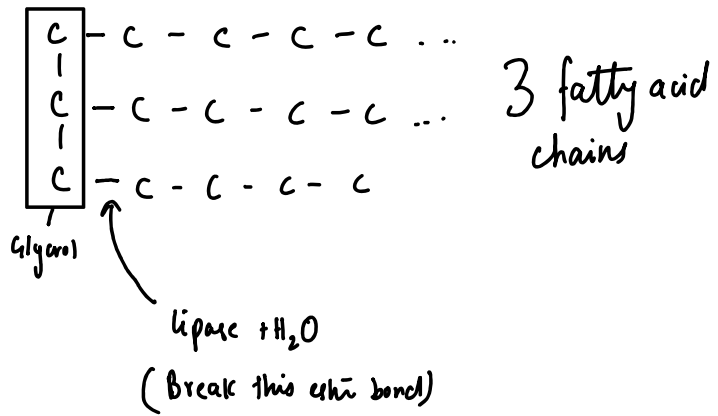 C - C - C - C - C ...
C - C - C - C - C ...
C - C - C - C - C
3 fatty acid
chains
Glycerol
lipase + H₂O
(Break this ester bond)